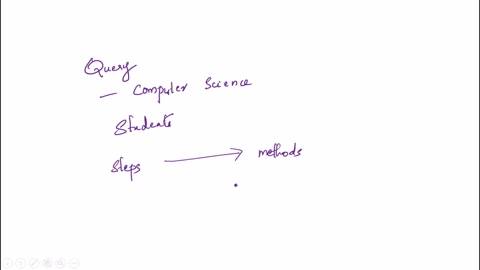 Query
— Computer Science
Students
Steps → methods